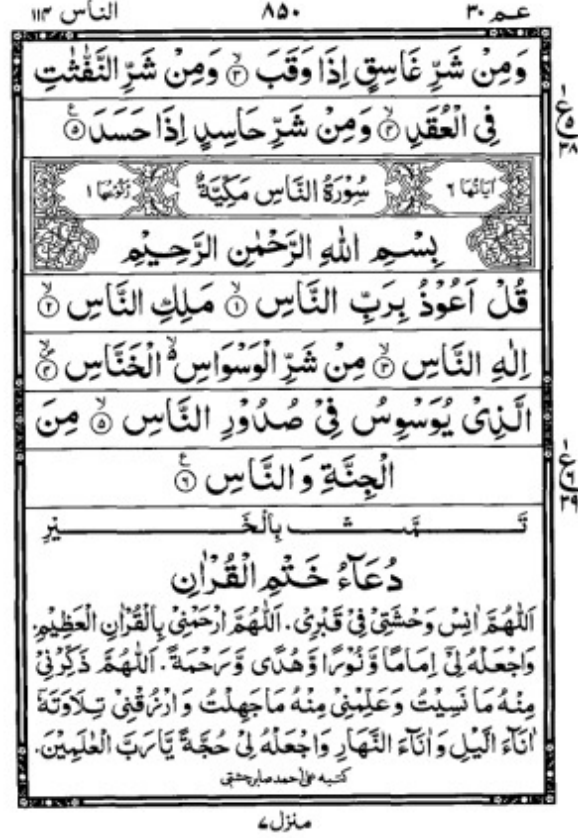 عـم ٣٠ ٨٥٠ الناس ١١٤
وَمِنْ شَرِّ غَاسِقٍ اِذَا وَقَبَ ۙ﴿٣﴾ وَمِنْ شَرِّ النَّفّٰثٰتِ
فِى الْعُقَدِ ۙ﴿٤﴾ وَمِنْ شَرِّ حَاسِدٍ اِذَا حَسَدَ ﴿٥﴾ ع
١ ع ٥ ٣٨
اٰيَاتُهَا ٦ سُوْرَةُ النَّاسِ مَكِّيَّةٌ رُكُوْعُهَا ١
بِسْمِ اللهِ الرَّحْمٰنِ الرَّحِيْمِ
قُلْ اَعُوْذُ بِرَبِّ النَّاسِ ۙ﴿١﴾ مَلِكِ النَّاسِ ۙ﴿٢﴾
اِلٰهِ النَّاسِ ۙ﴿٣﴾ مِنْ شَرِّ الْوَسْوَاسِ ۙ۬ الْخَنَّاسِ ۙ﴿٤﴾
الَّذِىْ يُوَسْوِسُ فِىْ صُدُوْرِ النَّاسِ ۙ﴿٥﴾ مِنَ
الْجِنَّةِ وَ النَّاسِ ﴿٦﴾ ع
١ ع ٦ ٣٩
تَمَّتْ بِالْخَيْرِ
دُعَآءُ خَتْمِ الْقُرْاٰنِ
اَللّٰهُمَّ اٰنِسْ وَحْشَتِىْ فِىْ قَبْرِىْ. اَللّٰهُمَّ ارْحَمْنِىْ بِالْقُرْاٰنِ الْعَظِيْمِ.
وَاجْعَلْهُ لِىْ اِمَامًا وَّنُوْرًا وَّهُدًى وَّرَحْمَةً. اَللّٰهُمَّ ذَكِّرْنِىْ
مِنْهُ مَا نَسِيْتُ وَعَلِّمْنِىْ مِنْهُ مَا جَهِلْتُ وَارْزُقْنِىْ تِلَاوَتَهٗ
اٰنَآءَ الَّيْلِ وَاٰنَآءَ النَّهَارِ وَاجْعَلْهُ لِىْ حُجَّةً يَّا رَبَّ الْعٰلَمِيْنَ.
كتبه على احمد صابر چشتى
منزل ٧